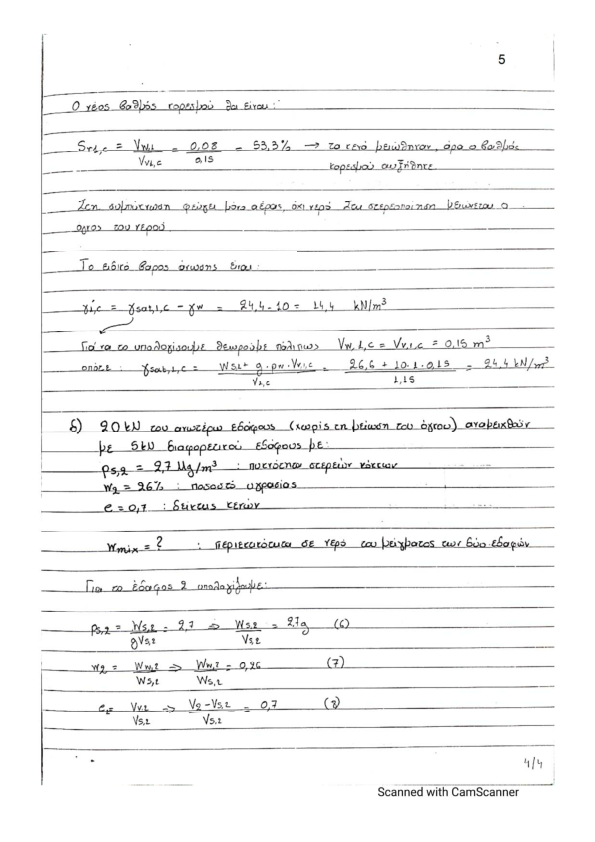 5
Ο νέος βαθμός κορεσμού θα είναι:
Sr1,c = Vw,1 / Vv1,c = 0,08 / 0,15 = 53,3% → τα κενά μειώθηκαν, άρα ο βαθμός
κορεσμού αυξήθηκε
Στη συμπύκνωση φεύγει μόνο αέρας, όχι νερό. Στη στερεοποίηση μειώνεται ο
όγκος του νερού
Το ειδικό βάρος άνωσης είναι:
γ'1,c = γsat,1,c - γw = 24,4 - 10 = 14,4 kN/m³
Για να το υπολογίσουμε θεωρούμε πλήρως Vw,1,c = Vv,1,c = 0,15 m³
οπότε: γsat,1,c = Ws,1 + g·ρw·Vv,1,c / V1,c = 26,6 + 10·1·0,15 / 1,15 = 24,4 kN/m³
δ) 20 kN του ανωτέρω εδάφους (χωρίς τη μείωση του όγκου) αναμειχθούν
με 5 kN διαφορετικού εδάφους με:
ρs,2 = 2,7 Mg/m³ : πυκνότητα στερεών κόκκων
w2 = 26% : ποσοστό υγρασίας
e = 0,7 : δείκτης κενών
wmix = ? : περιεκτικότητα σε νερό του μείγματος των δύο εδαφών
Για το έδαφος 2 υπολογίζουμε:
ρs,2 = Ws,2 / gVs,2 = 2,7 ⇒ Ws,2 / Vs,2 = 2,7g (6)
w2 = Ww,2 / Ws,2 ⇒ Ww,2 / Ws,2 = 0,26 (7)
e2 = Vv,2 / Vs,2 ⇒ V2 - Vs,2 / Vs,2 = 0,7 (8)
4/4
Scanned with CamScanner